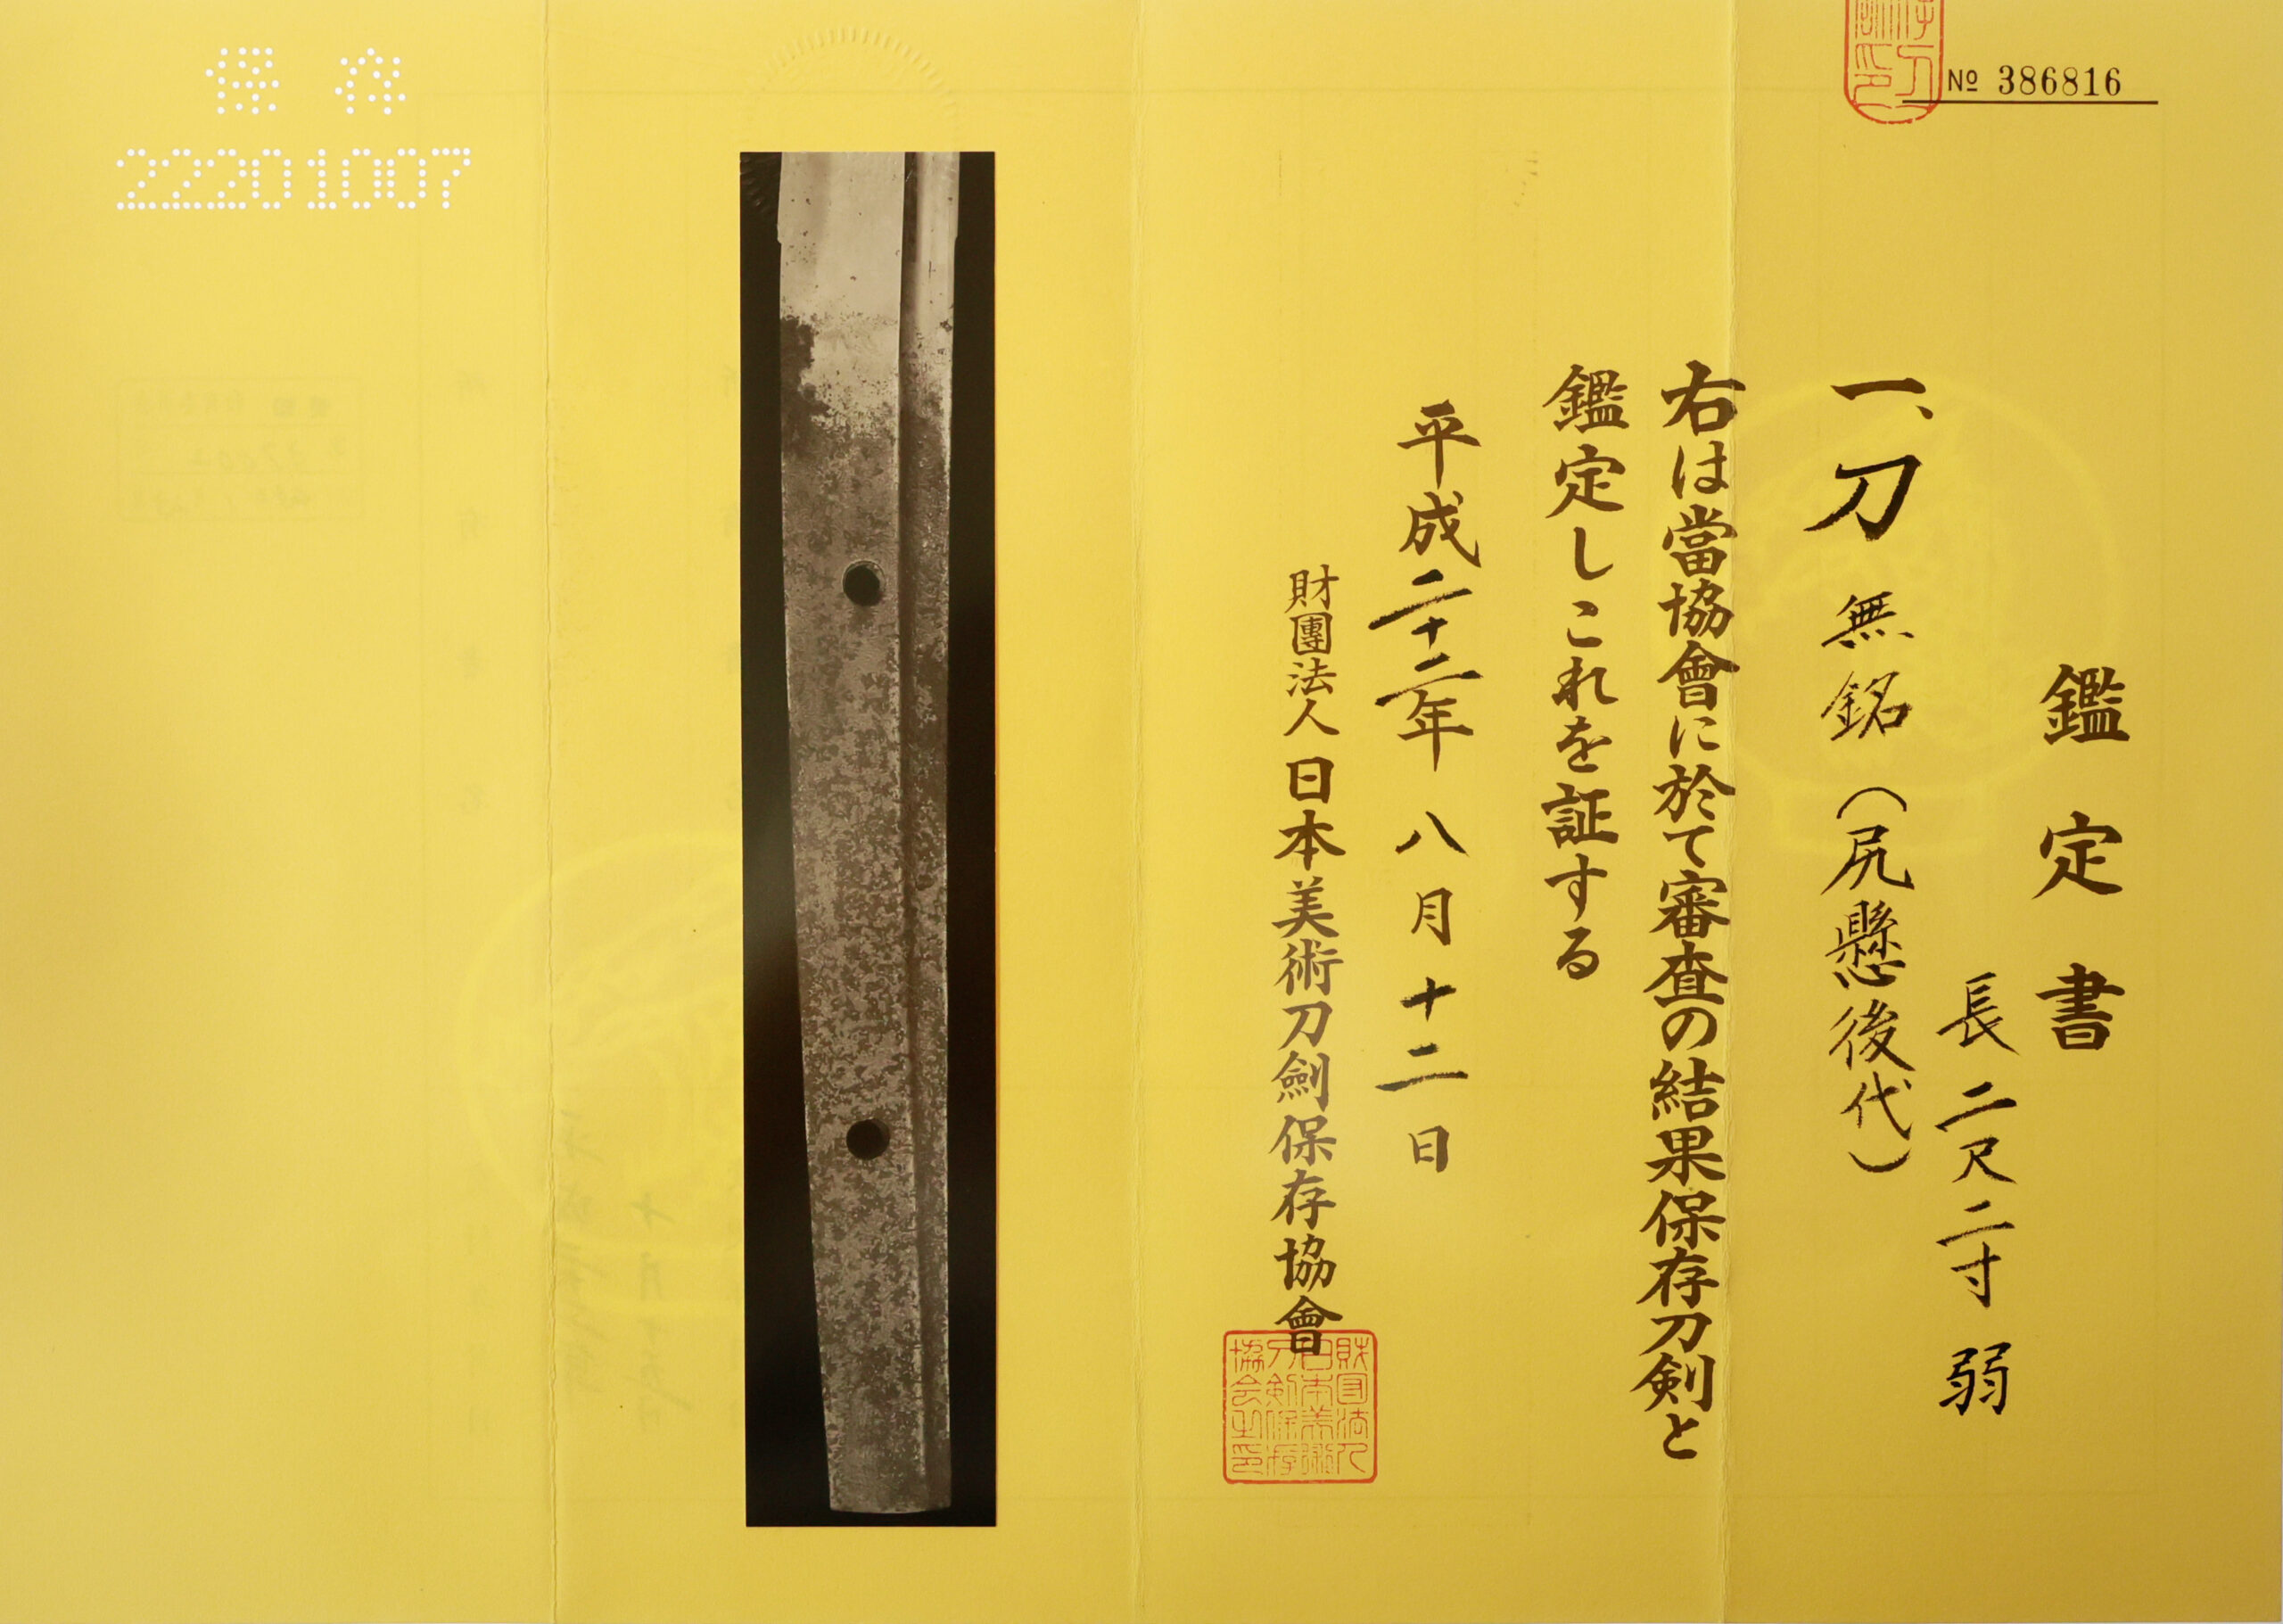 № 386816
鑑定書
一、刀 無銘（尻懸後代）
長二尺二寸弱
右は當協會に於て審査の結果保存刀剣と
鑑定しこれを証する
平成二十二年八月十二日
財團法人日本美術刀劍保存協會
財団法人
日本美術
刀剣保存
協会之印
保存
22201007